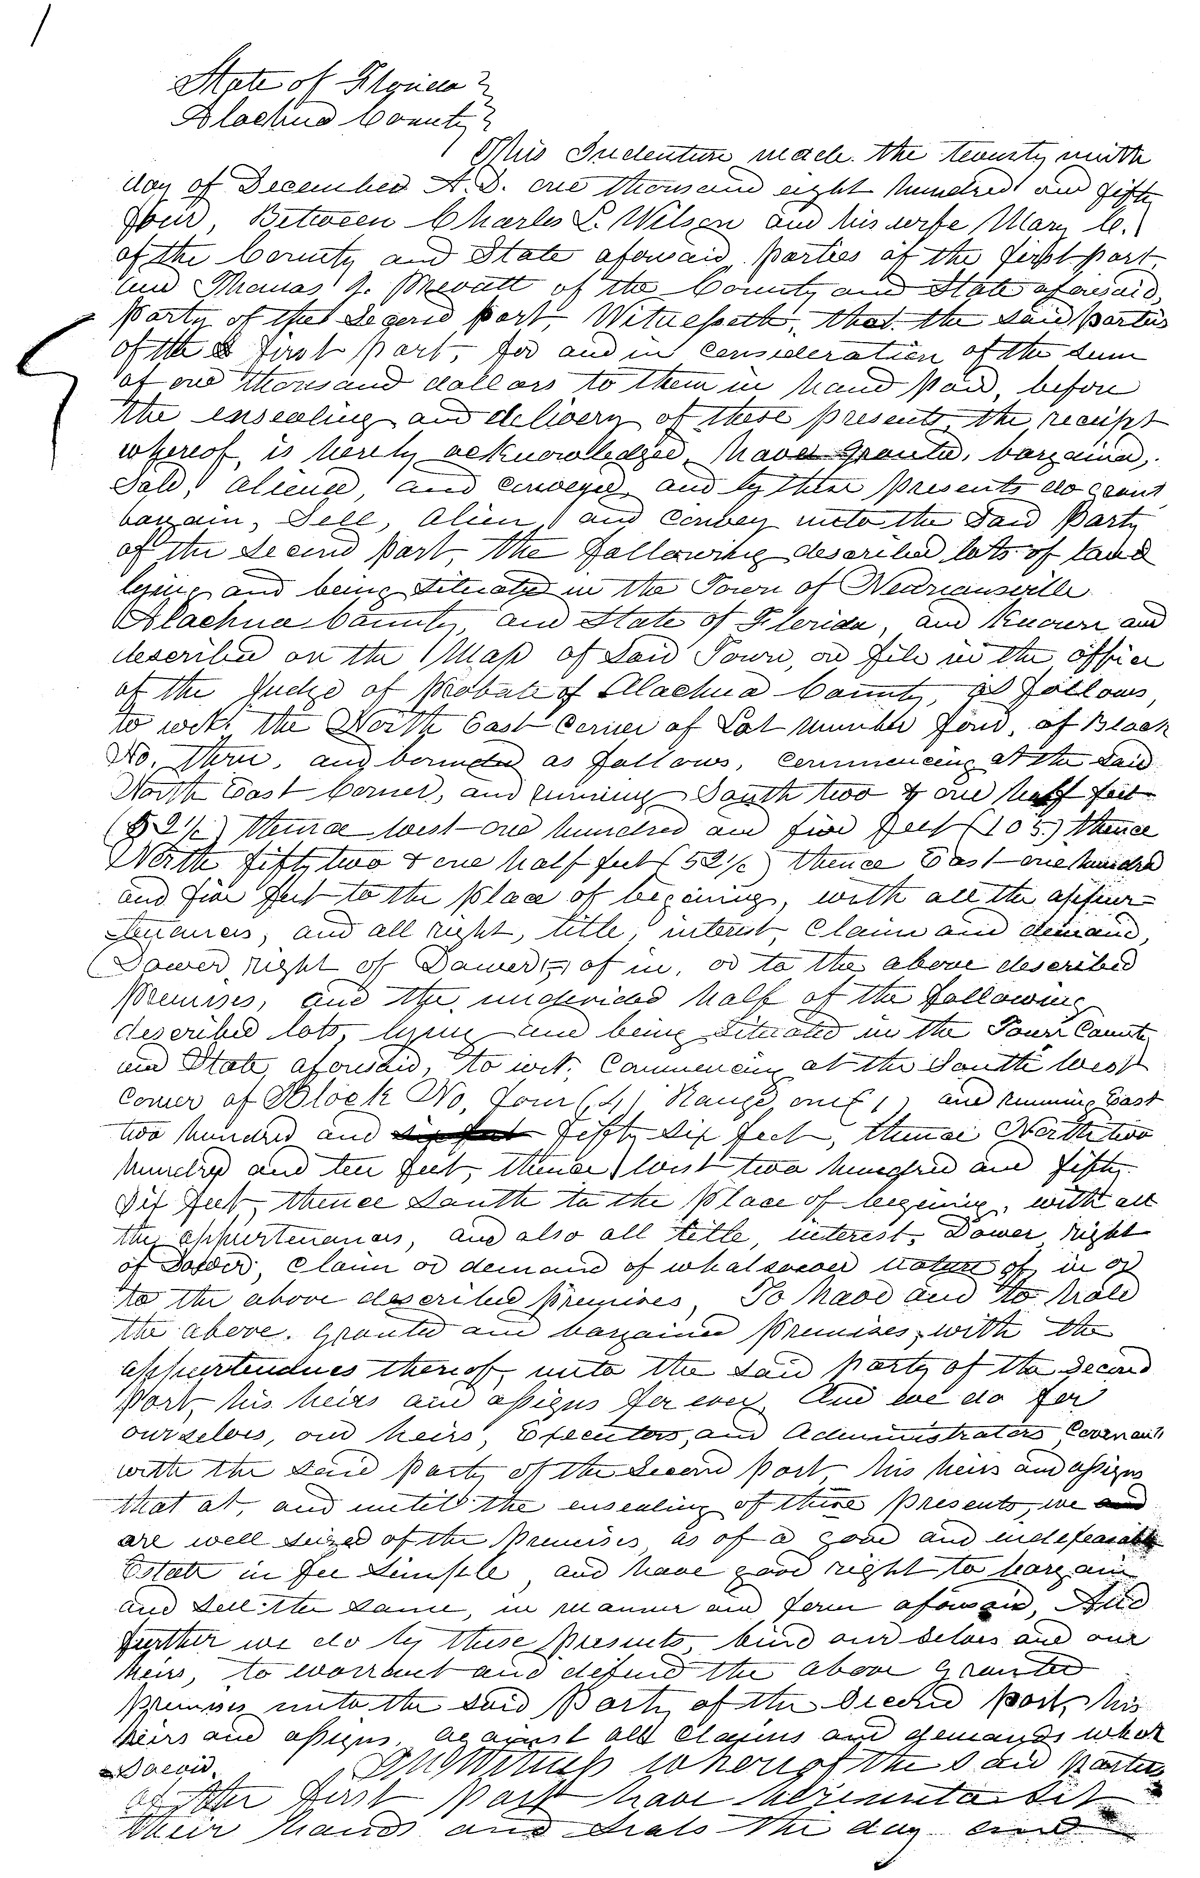 State of Florida }
Alachua County }
This Indenture made the twenty ninth
day of December A.D. one thousand eight hundred and fifty
four, Between Charles L. Wilson and his wife Mary C.
of the County and State aforesaid parties of the first part
and Thomas J. Prevatt of the County and State aforesaid,
Party of the Second part, Witnesseth, that the said parties
of the first part, for and in consideration of the sum
of one thousand dollars to them in hand paid, before
the ensealing and delivery of these presents, the receipt
whereof, is hereby acknowledged, have granted, bargained,
Sold, aliened, and conveyed, and by these presents do grant
bargain, Sell, alien, and convey unto the said Party
of the second part, the following described lots of land
lying and being situate in the Town of Newnansville
Alachua County, and State of Florida, and known and
described on the Map of said Town, on file in the office
of the Judge of Probate of Alachua County, as follows,
to wit, the North East corner of Lot number four, of Block
No. three, and bounded as follows, commencing at the said
North East Corner, and running South two & one half feet
(52½) thence west one hundred and five feet (105) thence
North fifty two & one half feet (52½) thence East one hundred
and five feet to the place of begining, with all the appur=
tenances, and all right, title, interest, claim and demand,
(Dower, right of Dower,) of in, or to the above described
premises, and the undivided half of the following
described lots, lying and being situated in the Town County
and State aforesaid, to wit, Commencing at the South West
corner of Block No. four (4) Range one (1) and running East
two hundred and six feet fifty six feet, thence North two
hundred and ten feet, thence West two hundred and fifty
six feet, thence South to the place of begining, with all
the appurtenances, and also all title, interest, Dower, right
of Dower, claim or demand of whatsoever nature of, in or
to the above described premises, To have and to hold
the above granted and bargained premises, with the
appurtenances thereof, unto the said party of the second
part, his heirs and assigns for ever. And we do for
ourselves, our heirs, Executors, and Administrators, Covenant
with the said party of the Second part, his heirs and assigns
that at, and until the ensealing of these presents, we and
are well seized of the premises as of a good and indefeasable
Estate in fee simple, and have good right to bargain
and sell the same, in manner and form aforesaid, And
further we do by these presents, bind ourselves and our
heirs, to warrant and defend the above granted
premises unto the said party of the Second part, his
heirs and assigns, against all claims and demands what
soever. In Witness whereof the said parties
of the first part have hereunto set
their hands and seals the day and